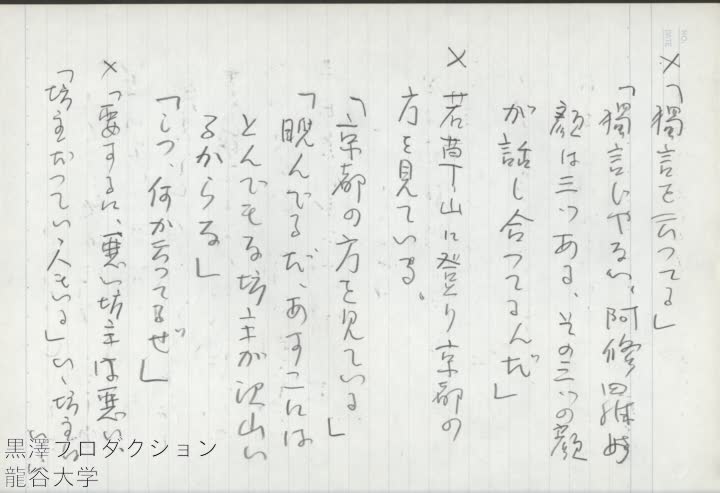 ×「獨言を云つてる」
「獨言じやない、阿修羅
顔は三つある、その三つの顔
が話し合つてるんだ」
× 若草山に登り京都の
方を見ている。
「京都の方を見ている」
「睨んでるだ、あすこには
とんでもる坊主が沢山い
るからる」
「しつ、何か云つてるぜ」
×「要するに、悪い坊主は悪い、
「坊主だつていゝ人もいる」いゝ坊主は
いゝ」
黒澤プロダクション
龍谷大学
NO.
DATE